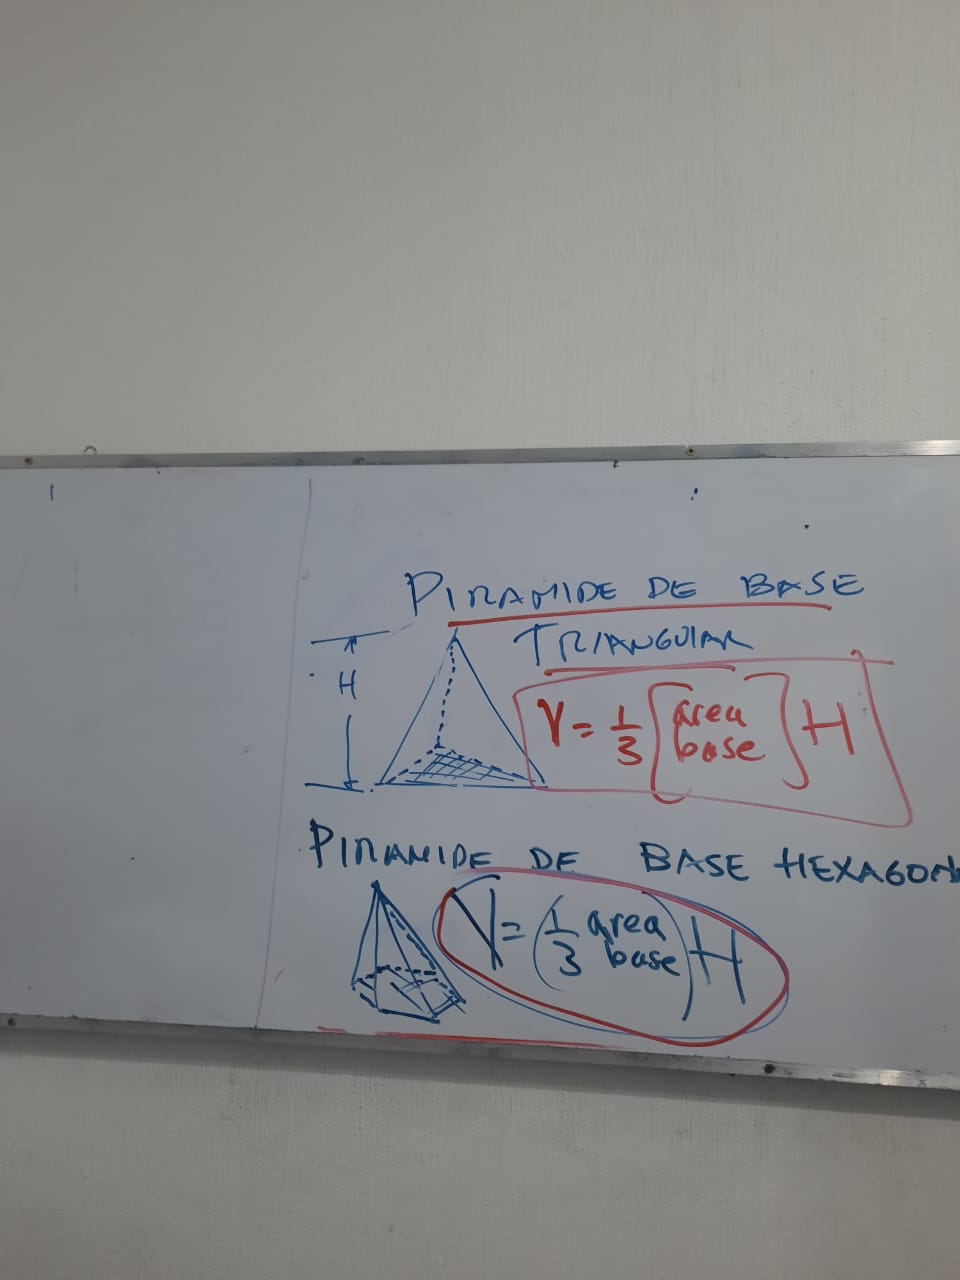 PIRAMIDE DE BASE
TRIANGULAR
H
V = 1/3 [area base] H
PIRAMIDE DE BASE HEXAGON
V = (1/3 area base) H